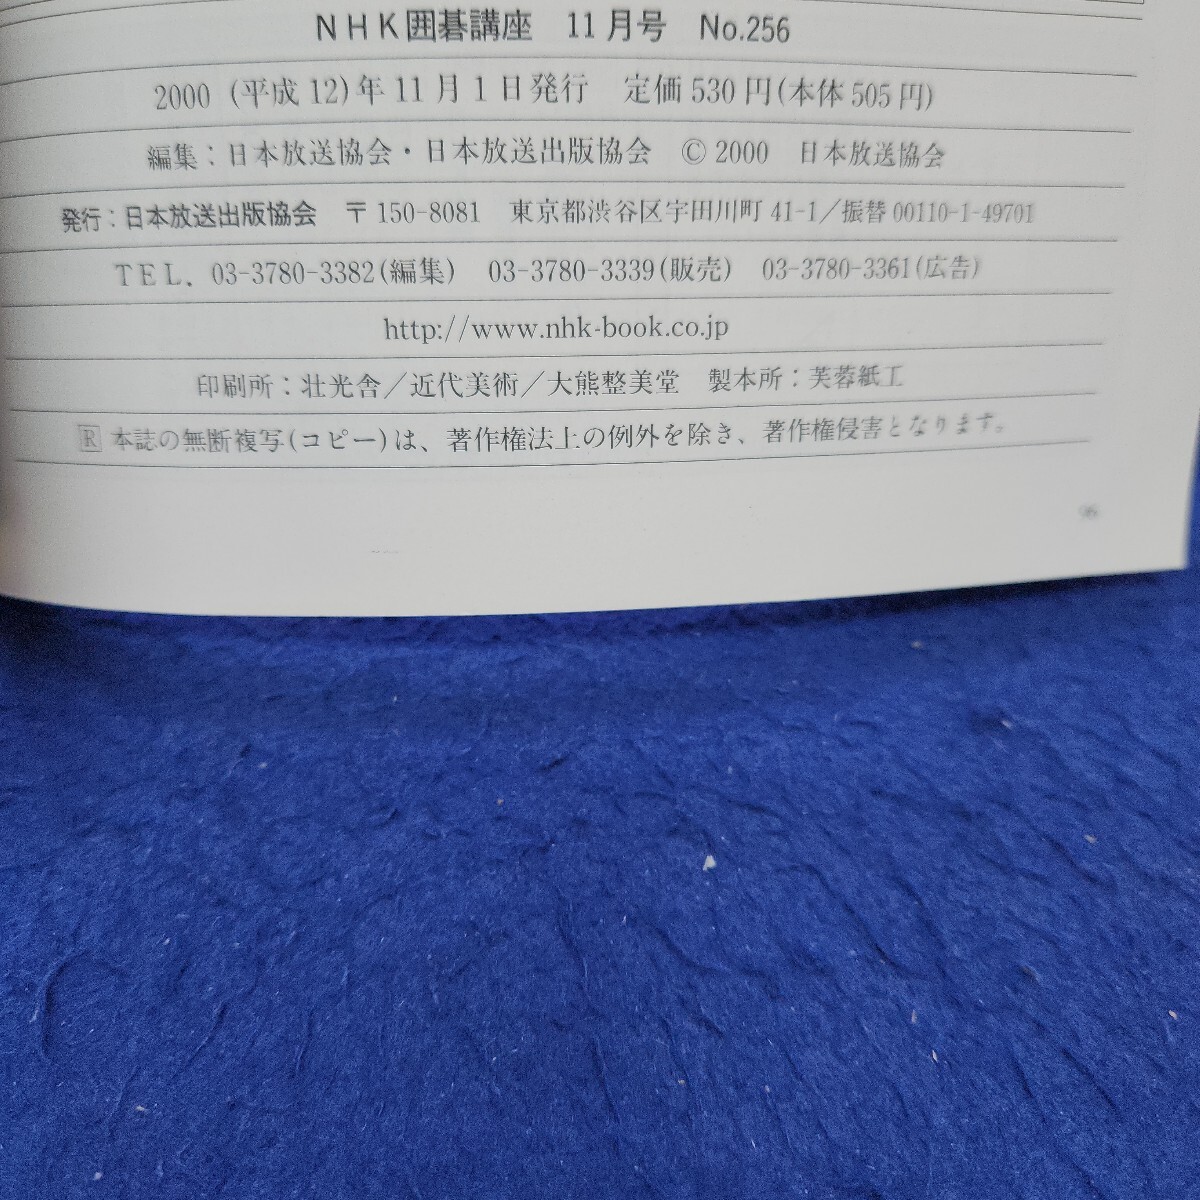 NHK囲碁講座　11月号　No.256
2000 (平成12)年11月1日発行　定価530円(本体505円)
編集：日本放送協会・日本放送出版協会　© 2000　日本放送協会
発行：日本放送出版協会　〒150-8081　東京都渋谷区宇田川町41-1／振替00110-1-49701
TEL. 03-3780-3382(編集)　03-3780-3339(販売)　03-3780-3361(広告)
http://www.nhk-book.co.jp
印刷所：壮光舎／近代美術／大熊整美堂　製本所：芙蓉紙工
R 本誌の無断複写(コピー)は、著作権法上の例外を除き、著作権侵害となります。
96